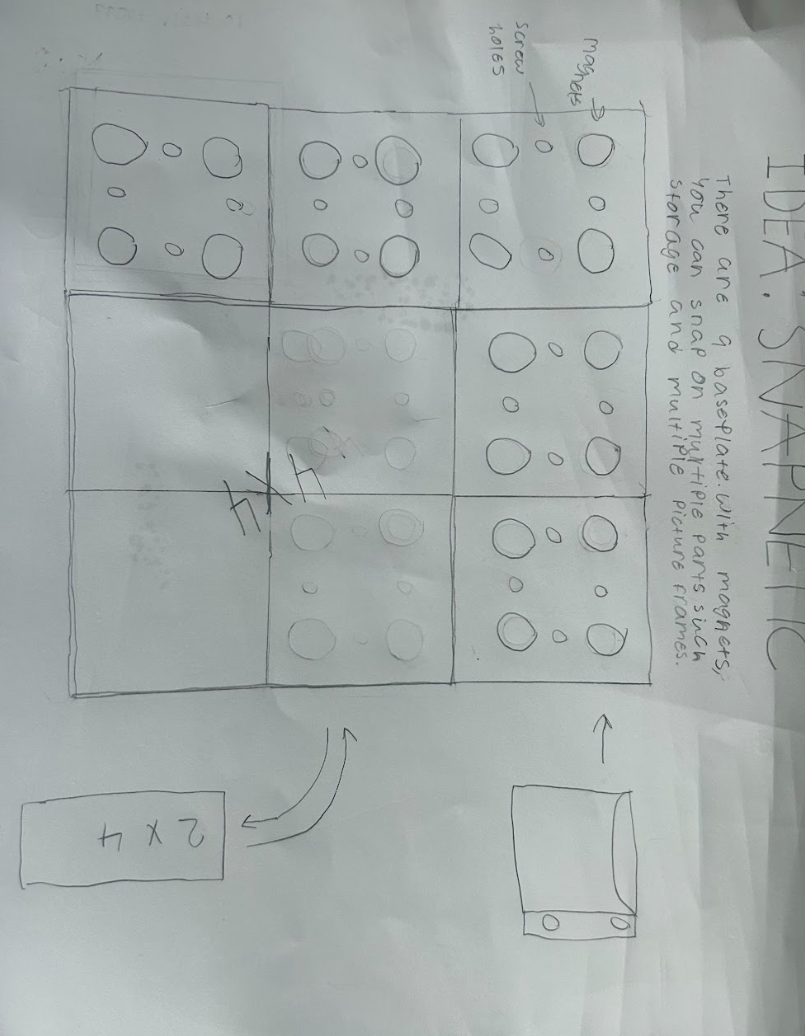 IDEA: SNAPNETIC
There are 9 baseplate. with magnets,
you can snap on multiple parts such
storage and multiple picture frames.
magnets
screw
holes
4 X 4
2 x 4